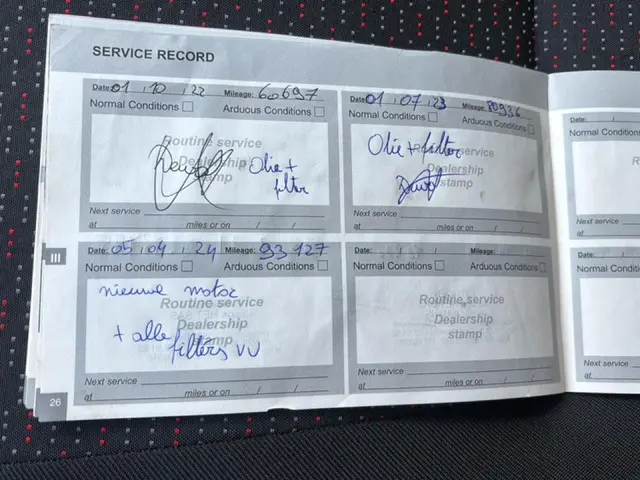 SERVICE RECORD
Date: 01 , 10 , 22 Mileage: 60697
Normal Conditions Arduous Conditions
Routine service
Dealership
stamp
Olie +
filter
Next service
at miles or on / /
Date: 01 , 07 , 23 Mileage: 80936
Normal Conditions Arduous Conditions
Olie + filter
Routine service
Dealership
stamp
Next service
at miles or on / /
Date: 05 , 04 , 24 Mileage: 93127
Normal Conditions Arduous Conditions
nieuwe motor
Routine service
Dealership
stamp
+ alle
filters VV
Next service
at miles or on / /
Date: / / Mileage:
Normal Conditions Arduous Conditions
Routine service
Dealership
stamp
Next service
at miles or on / /
Date: /
Normal Conditions
Routine
Next service
at
Date: /
Normal Conditions
Next service
at
III
26